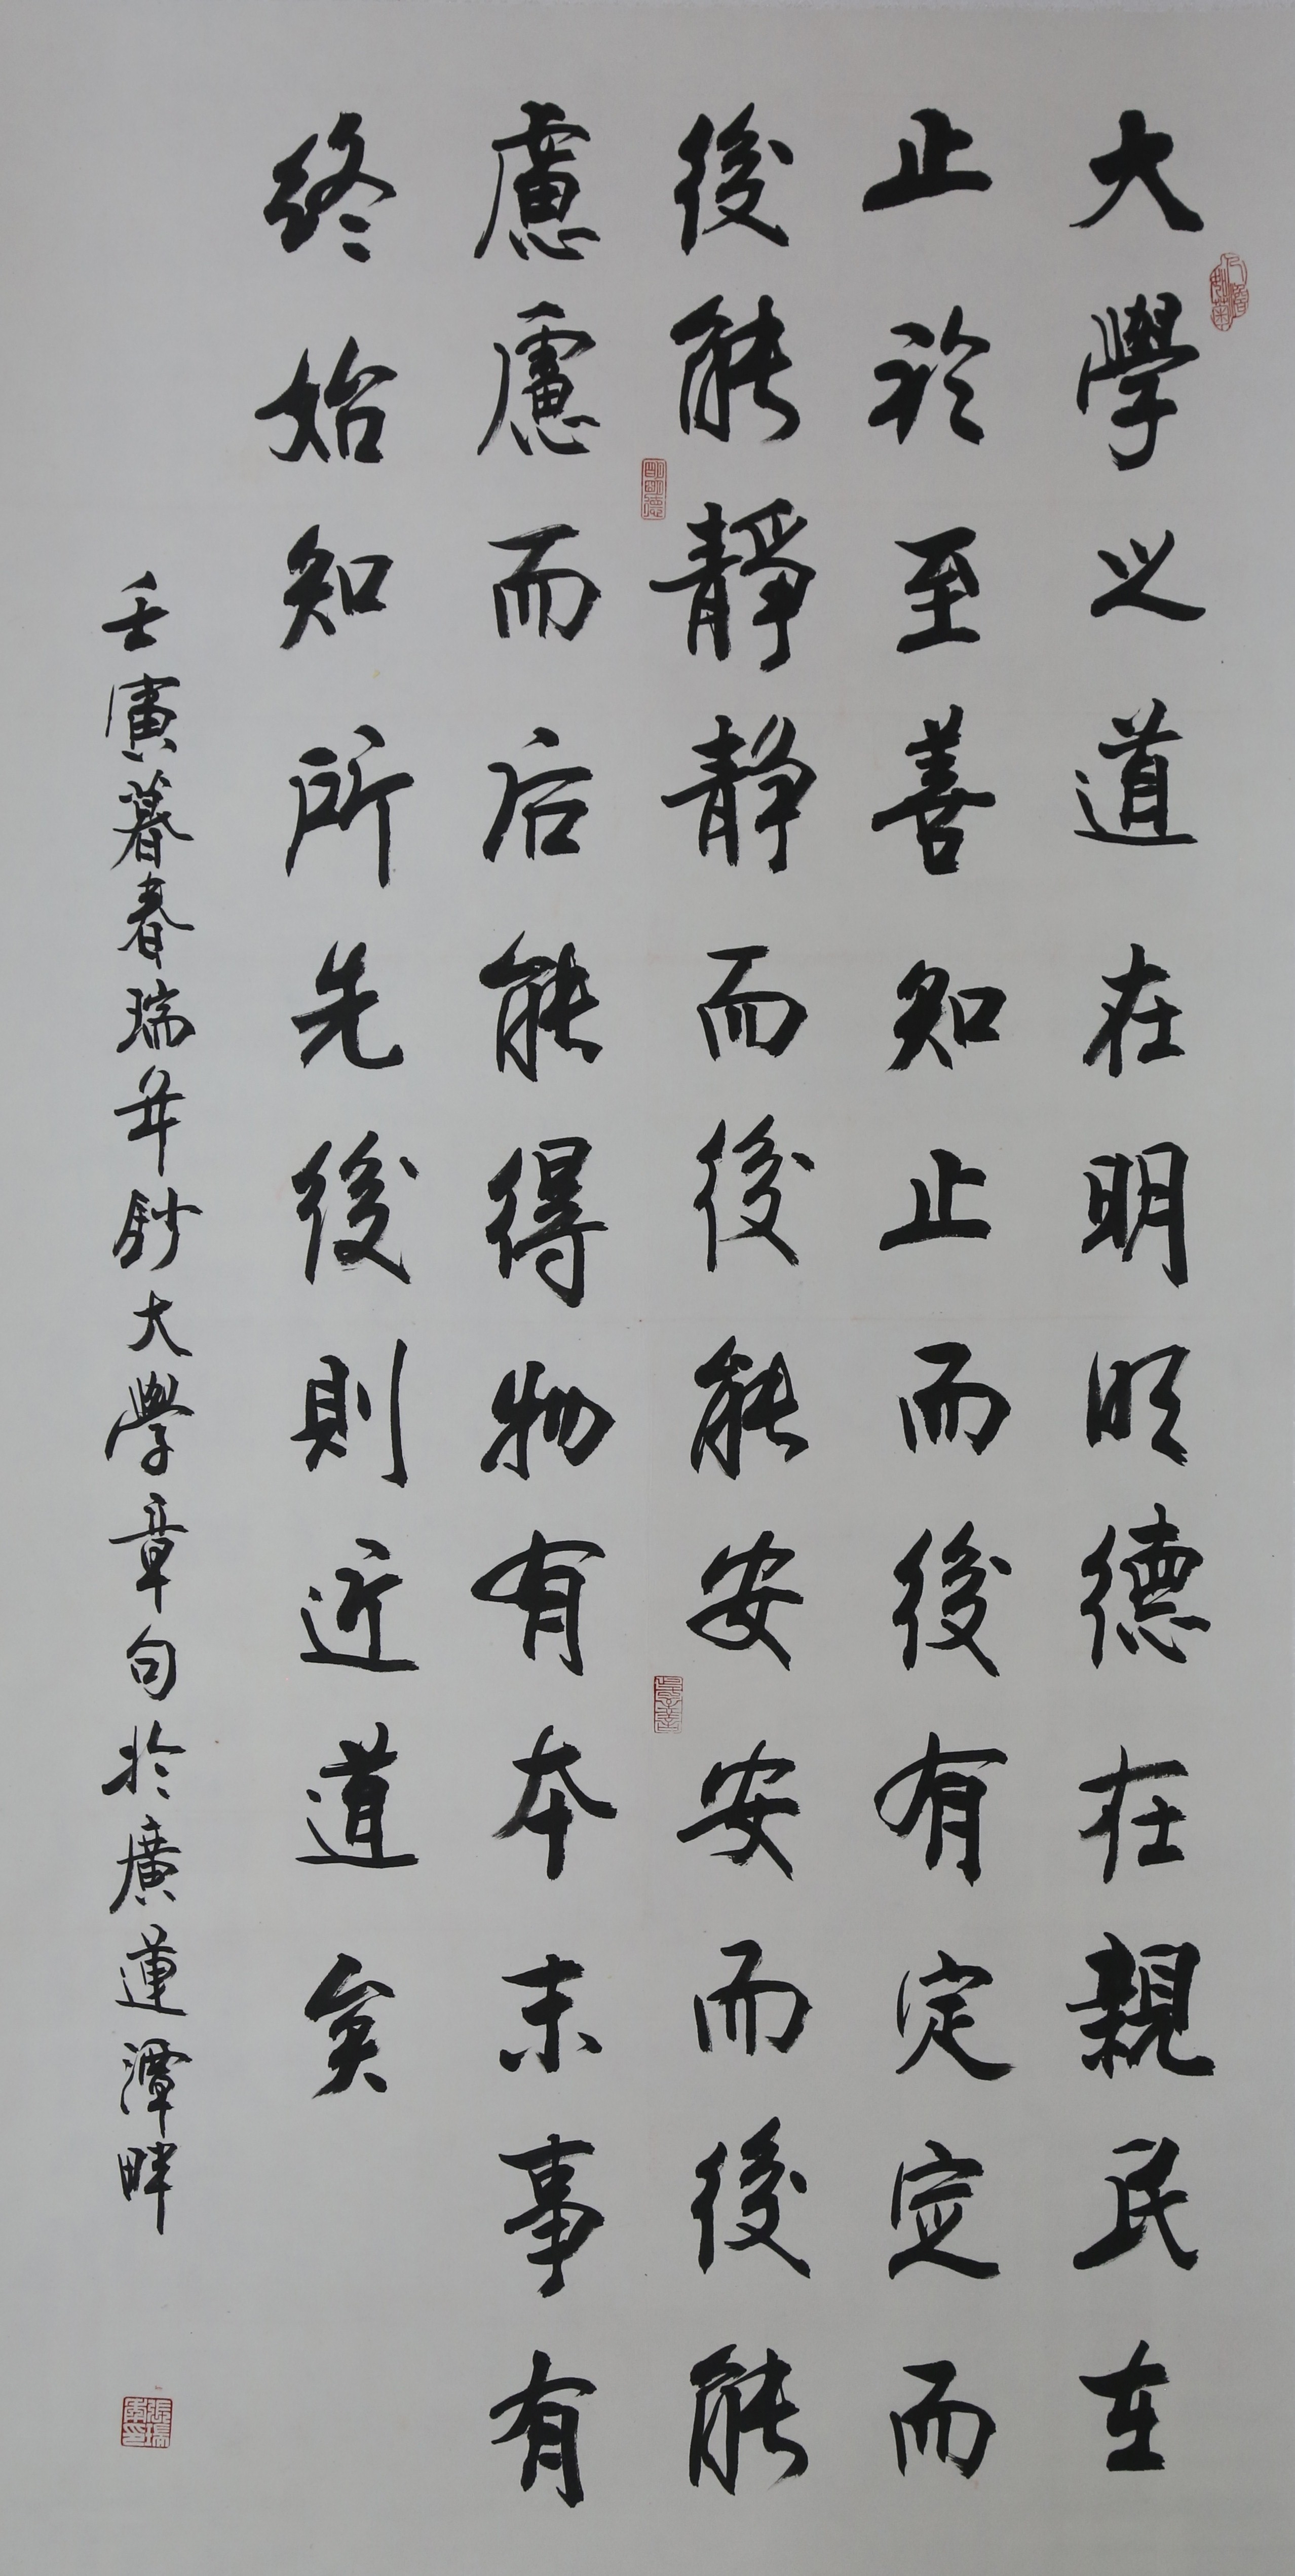 大學之道在明明德在親民在
止於至善知止而後有定定而
後能靜靜而後能安安而後能
慮慮而后能得物有本末事有
終始知所先後則近道矣
壬寅暮春瑞年鈔大學章句於廣蓮潭畔
明明德